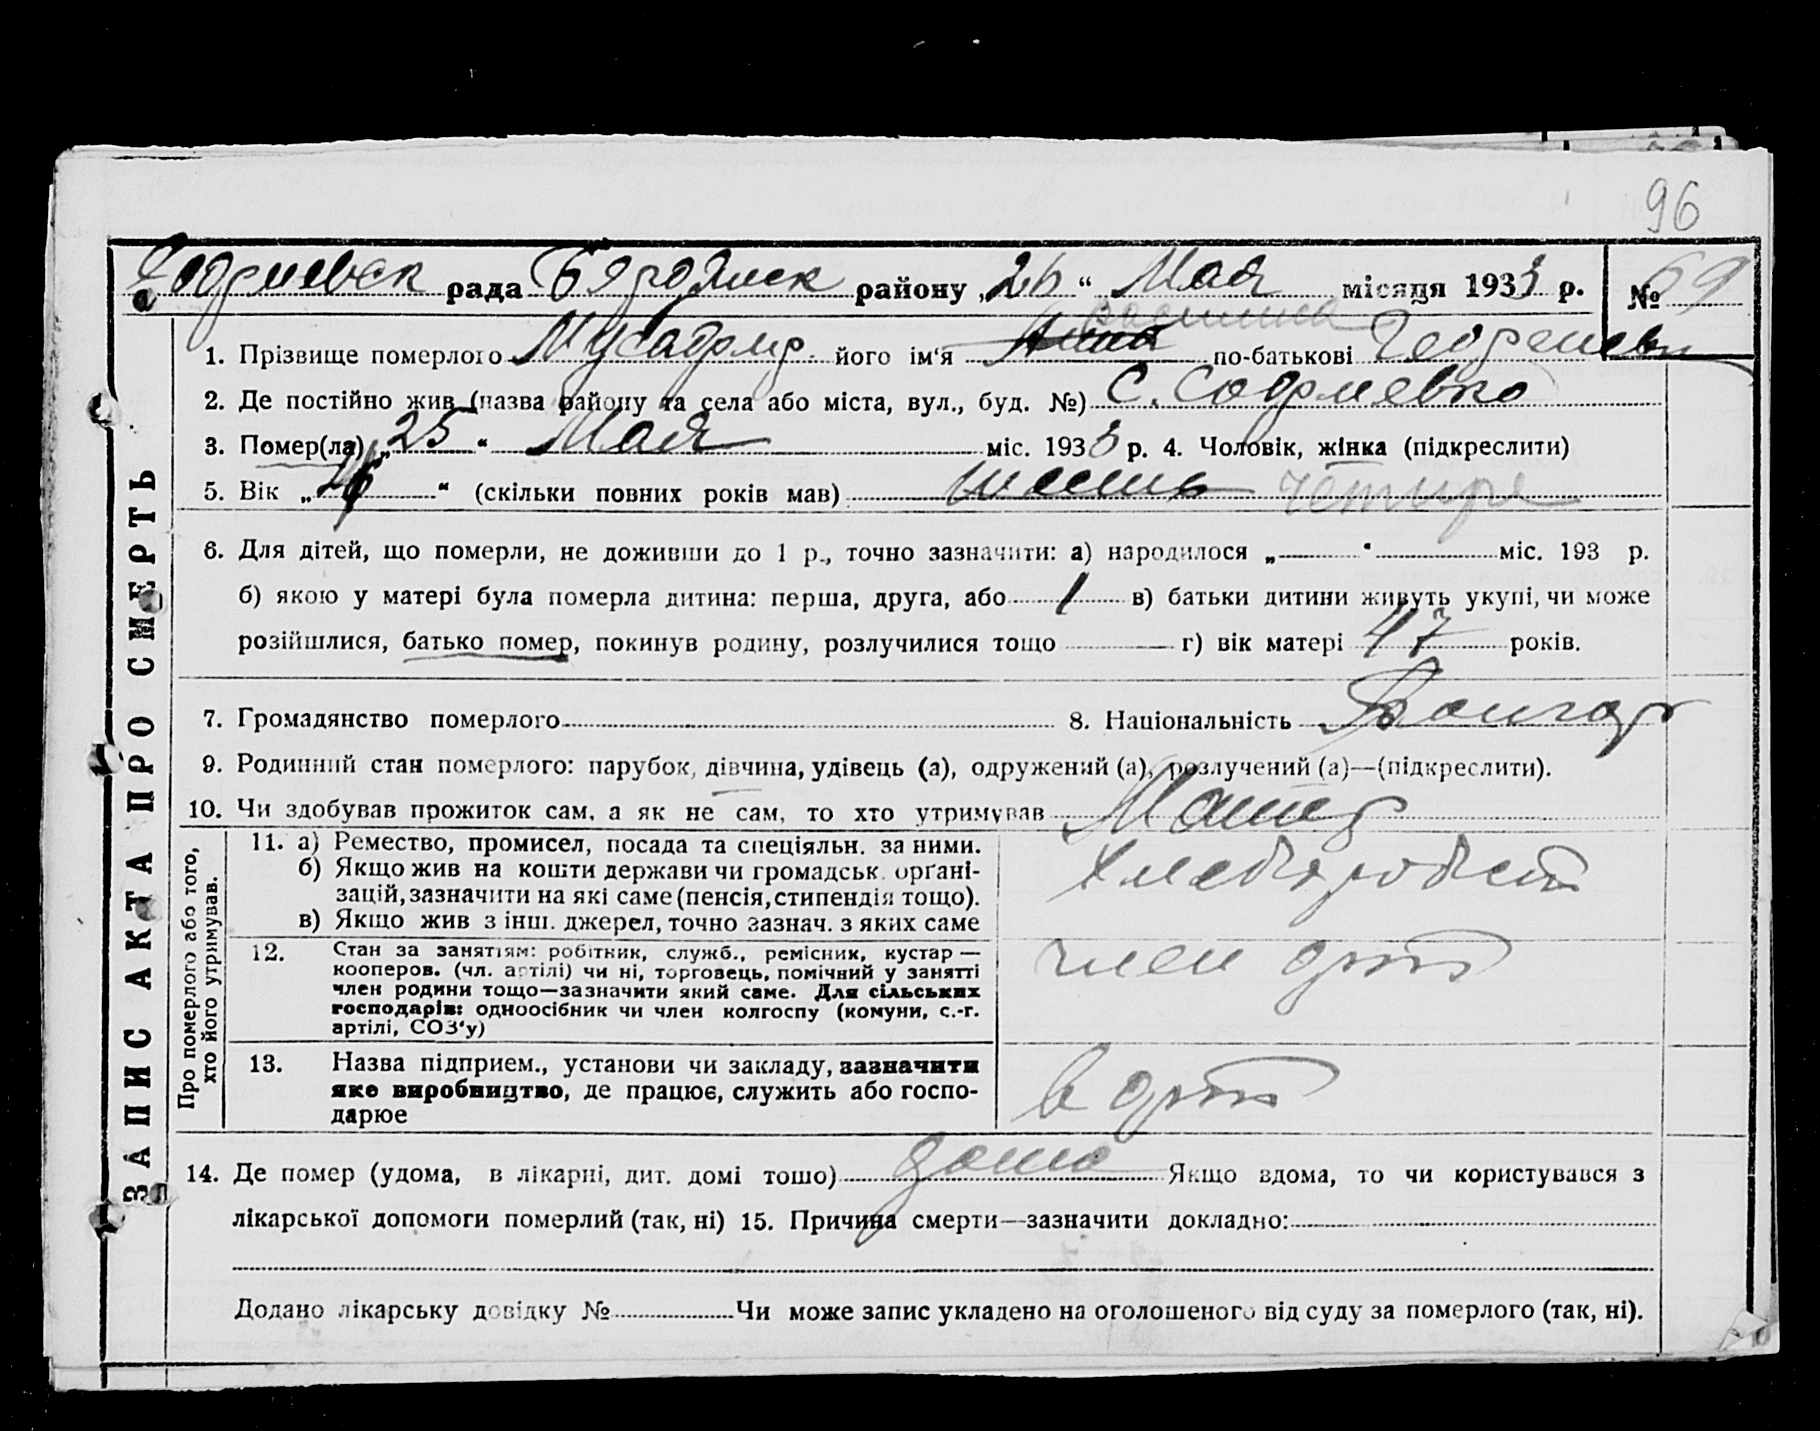 96
Софиевск рада Бердянск району „26“ Мая місяця 1933 р. № 69
1. Прізвище померлого Мусафир його ім'я Анна Василиса по-батькові
2. Де постійно жив (назва району та села або міста, вул., буд. №) С. Софиевка
3. Помер(ла) „25“ Мая міс. 1933 р. 4. Чоловік, жінка (підкреслити)
5. Вік „ “ (скільки повних років мав) шесть четыре
6. Для дітей, що померли, не доживши до 1 р., точно зазначити: а) народилося „—“ міс. 193 р.
б) якою у матері була померла дитина: перша, друга, або 1 в) батьки дитини живуть укупі, чи може
розійшлися, батько помер, покинув родину, розлучилися тощо — г) вік матері 47 років.
7. Громадянство померлого 8. Національність Болгар
9. Родинний стан померлого: парубок, дівчина, удівець (а), одружений (а), розлучений (а)—(підкреслити).
10. Чи здобував прожиток сам, а як не сам, то хто утримував Матер
ЗАПИС АКТА ПРО СМЕРТЬ
Про померлого або того,
хто його утримував.
11. а) Ремество, промисел, посада та спеціяльн. за ними.
б) Якщо жив на кошти держави чи громадськ. орґані-
зацій, зазначити на які саме (пенсія, стипендія тощо).
в) Якщо жив з інш. джерел, точно зазнач. з яких саме
12. Стан за заняттям: робітник, служб., ремісник, кустар —
кооперов. (чл. артілі) чи ні, торговець, помічний у занятті
член родини тощо—зазначити який саме. Для сільських
господарів: одноосібник чи член колгоспу (комуни, с.-г.
артілі, СОЗ'у)
член арт
13. Назва підприєм., установи чи закладу, зазначити
яке виробництво, де працює, служить або госпо-
дарює
в арт
14. Де помер (удома, в лікарні, дит. домі тощо) дома Якщо вдома, то чи користувався з
лікарської допомоги померлий (так, ні) 15. Причина смерти—зазначити докладно:
Додано лікарську довідку № Чи може запис укладено на оголошеного від суду за померлого (так, ні).